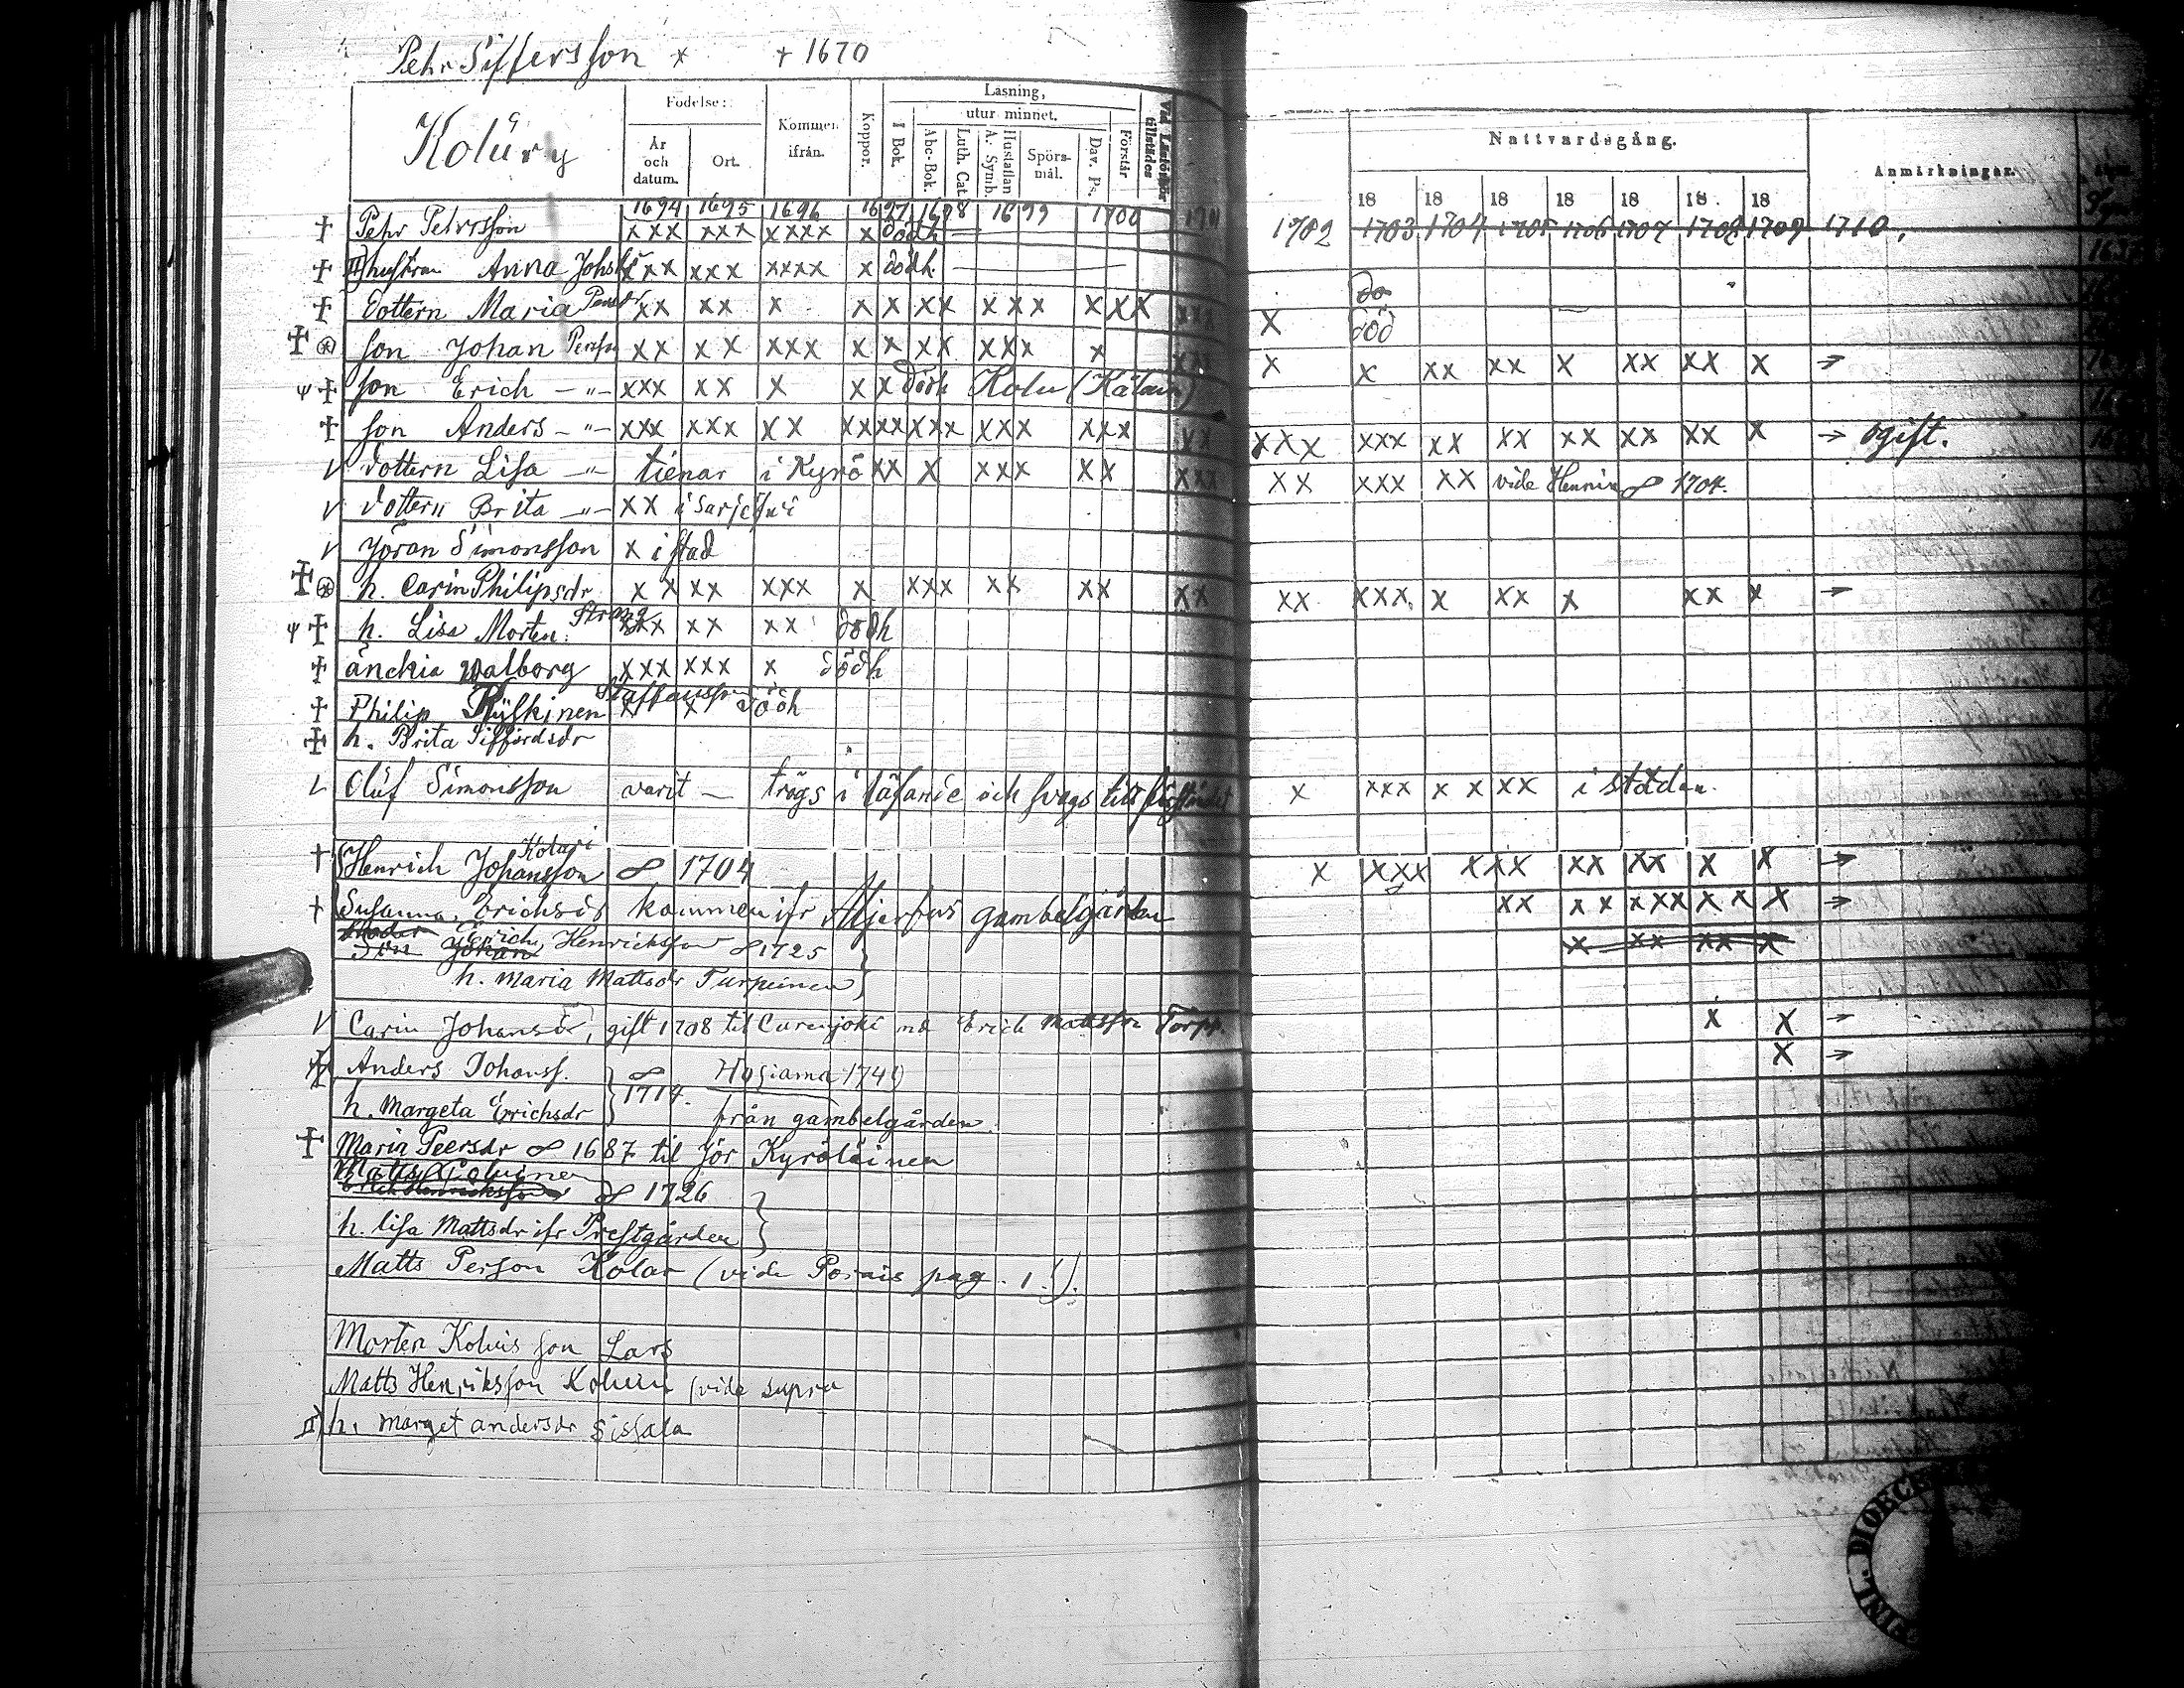 Pehr Siffersson x + 1670
7
Kolŭry
Födelse:
År och datum.
Ort.
Kommer ifrån.
Koppor.
Läsning,
utur minnet.
I Bok.
Abc-Bok.
Luth. Cat.
A.- Symb.
Hustaflan
Spörs-mål.
Dav. Ps.
Förstår
Nattvardsgång.
Anmärkningar.
18 18 18 18 18 18. 18
1694 1695 1696 1697 1698 1699 1700 1701 1702 1703 1704 1705 1706 1707 1708 1709 1710.
† Pehr Petersson xxx xxx xxxx x dödh
† II) hustrun Anna Johsdr xxx xxx xxxx x dödh.
do
† dottern Maria Persdr xx xx x x x xx xxx xxx xxx x död
† son Johan Persson xx xx xxx x x xx xxx x xxx x x xx xx x xx xx x →
ψ † son Erich -"- xxx xx x x x dödh Kolu
† son Anders -"- xxx xxx xx xxxx xxx xxx xxx xx xxx xxx xx xx xx xx xx x → ogift.
V dottern Lisa -"- tienar i Kyrö xx x xxx xx xxx xx xxx xx vide Henrik ∞ 1704.
V dottern Brita -"- xx i
V Jöran Simonsson x i stad
† h. Carin Philipsdr x x xx xxx x xxx xx xx xx xx xxx x xx x xx x →
ψ † h. Lisa Morten. Strang xxx xx xx dödh
† änckia Walborg xxx xxx x dödh
† Philip Staffansson x x dödh
† h. Brita Siffordsdr
L Oluf Simonsson varit — trögs i läsande och svags till förståndet x xxx x x xx i staden.
† Henrich Johansson Kolari ∞ 1704 x xxx xxx xx xx x x →
† Susanna Erichsdr kommen ifr Aljerfvis gambelgården xx x x xxx x x x →
Moder
Son Johan Erich Henricksson ∞ 1725 x xx xx x
h. Maria Mattsdr Turpeinen
V Carin Johansdr, gift 1708 til Curenjoki md Erich Mattsson Torp. x x →
Anders Johanss. ∞ 1714. x →
h. Margeta Erichsdr från gambelgården.
† Maria Peersdr ∞ 1687 til Jör Kyröläinen
Matts Koluinen
Erich Henricksson ∞ 1726
h. lisa Mattsdr ifr Prestgården
Matts Person Kolar (vide Pornis pag. 1!).
Morten Koluis son Lars
Matts Henriksson Koluin (vide supra
II) h. marget andersdr Sissala
DIOECE